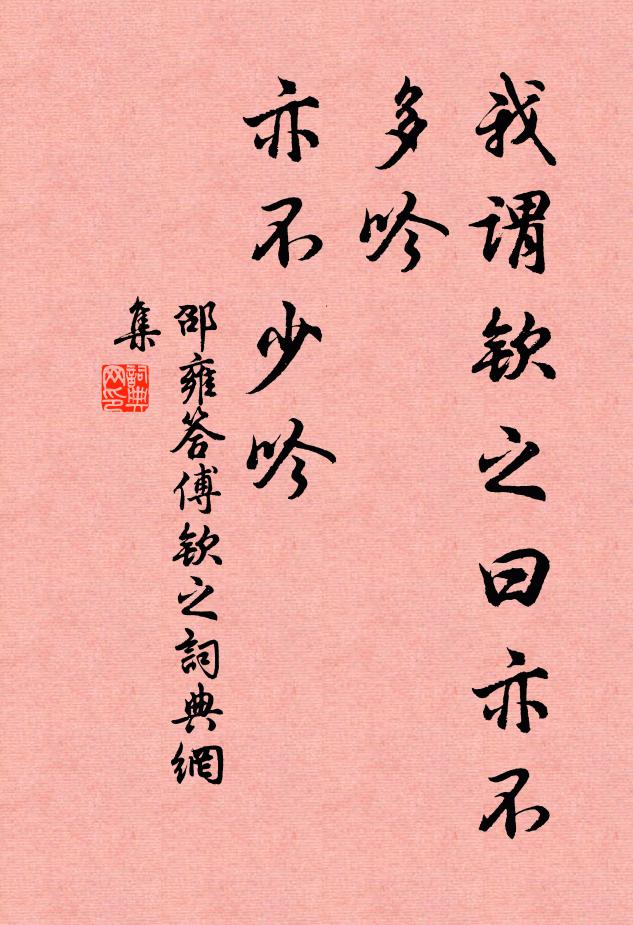 我谓钦之曰亦不
多吟
亦不少吟
邵雍答傅钦之詞典網
集
詞典
网印